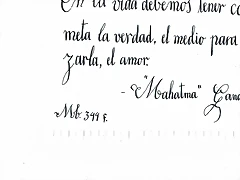 En la vida debemos tener co
meta la verdad, el medio para
zarla, el amor.
- "Mahatma" Gan
Mb. 399 f.